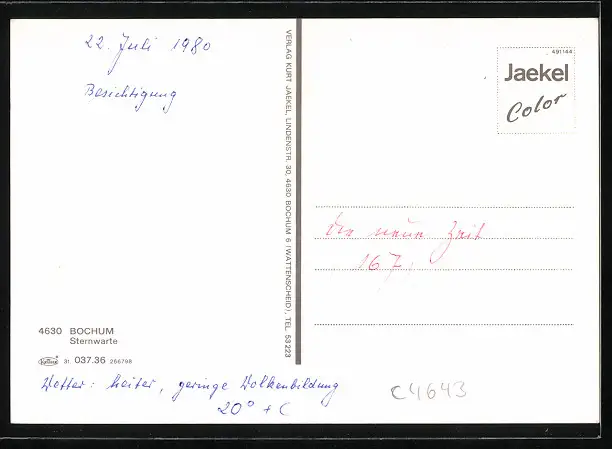 22. Juli 1980
Besichtigung
4630 BOCHUM
Sternwarte
Krüger 3t 037.36 266798
Wetter: heiter, geringe Wolkenbildung
20° + C
VERLAG KURT JAEKEL, LINDENSTR. 30, 4630 BOCHUM 6 (WATTENSCHEID), TEL. 53223
491144
Jaekel
Color
Die neue Zeit
167,
C4643